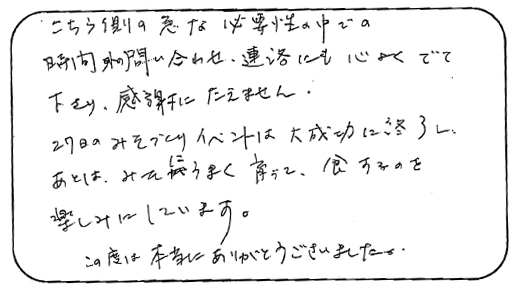 こちら側の急な必要性の中での
時間外の問い合わせ、連絡にも心よくでて
下さり、感謝にたえません。
27日のみそづくりイベントは大成功に終了し、
あとは、みそにうまく育って、食するのを
楽しみにしています。
この度は本当にありがとうございました。